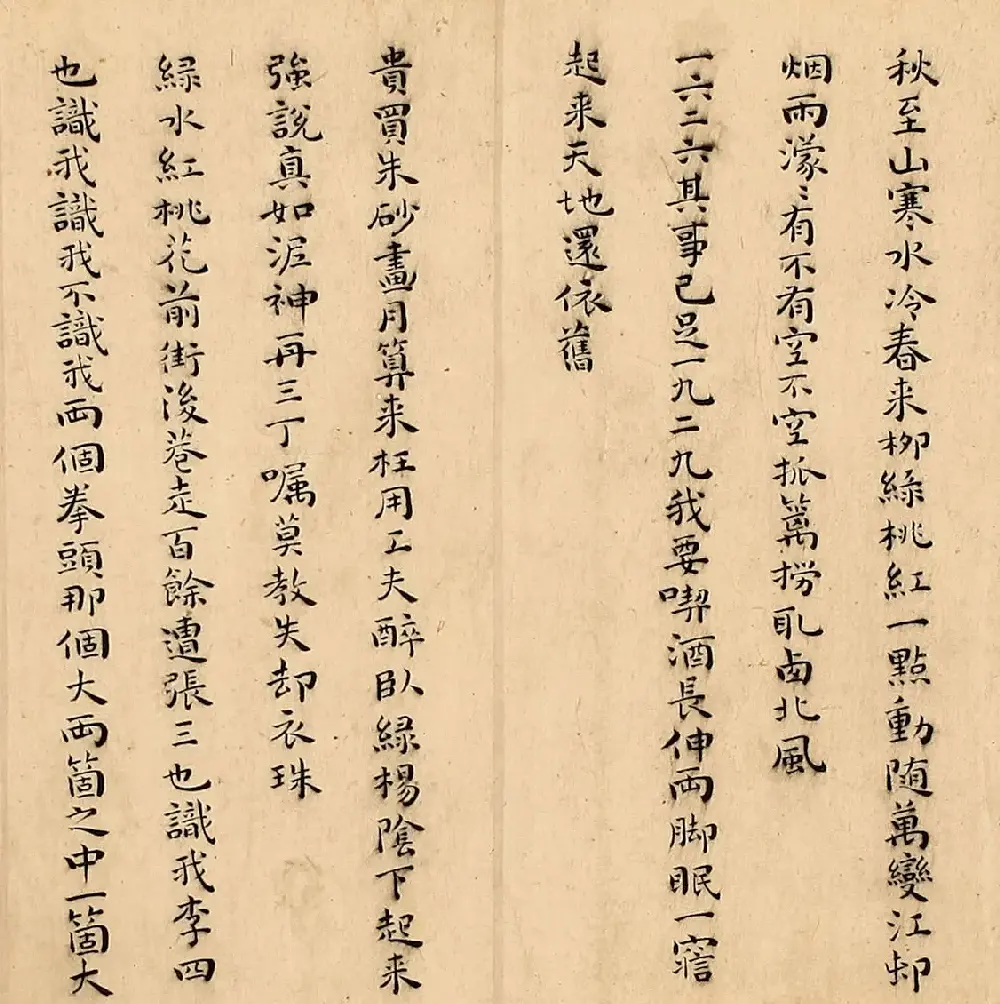 秋至山寒水冷春来柳緑桃紅一點動随萬變江邨
烟雨濛〻有不有空不空笊篱撈取西北風
一六二六其事已足一九二九我要喫酒長伸兩脚眠一寤
起来天地還依舊
貴買朱砂畫月算来枉用工夫醉臥緑楊陰下起来
強說真如泥神再三丁嘱莫教失却衣珠
緑水紅桃花前街後巷走百餘遭張三也識我李四
也識我識我不識我兩個拳頭那個大兩箇之中一箇大